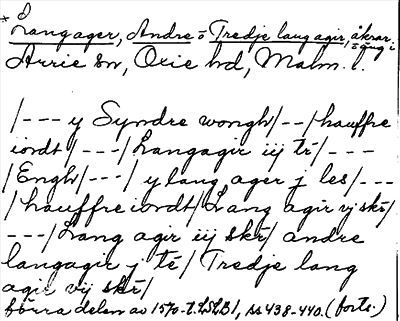 * Langager, Andre o Tredje langagir, åkrar o äng i
Arrie sn, Oxie hd, Malm. l.
/--- y Syndre wongh/--/hauffre
iordt/---/Langagir iij tr/---
/Engh/---/ y lang ager j les/---
/hauffre iordt/Lang agir vj skr/
---/Lang agir iij skr/ andre
langagir j tr/ Tredje lang
agir vij skr/
förra delen av 1570-t. LSLB1, ss 438-440. (forts.)